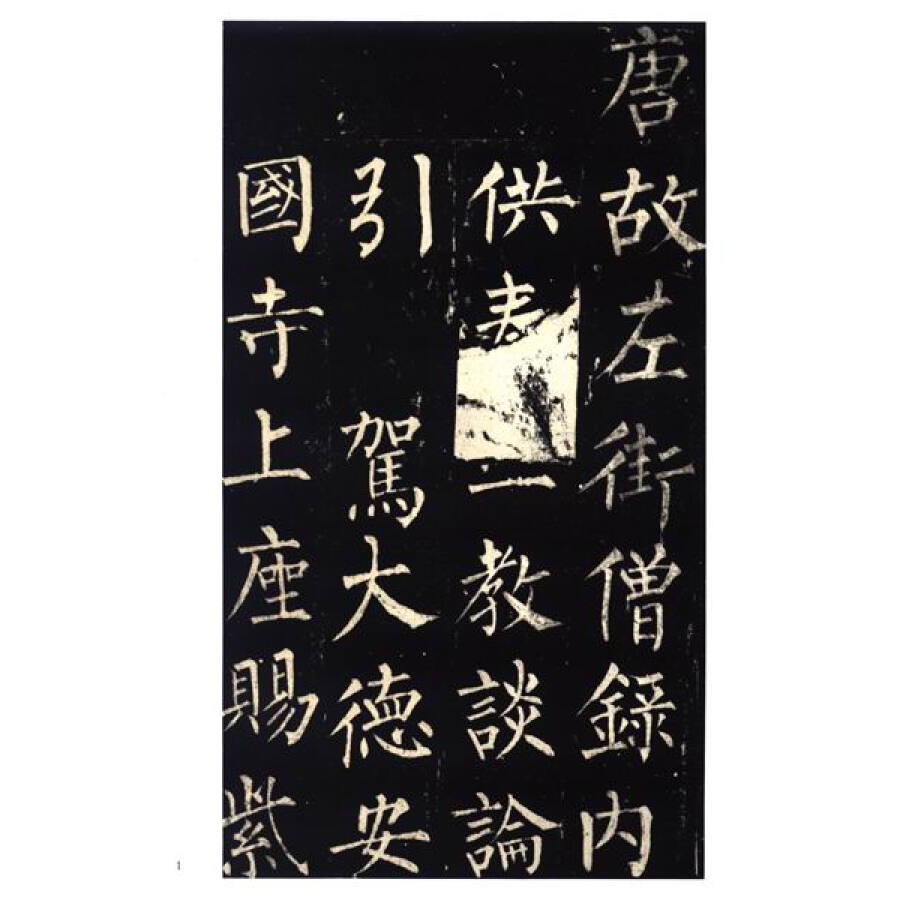 唐故左街僧錄内
供教談論
引駕大德安
國寺上座賜紫
1